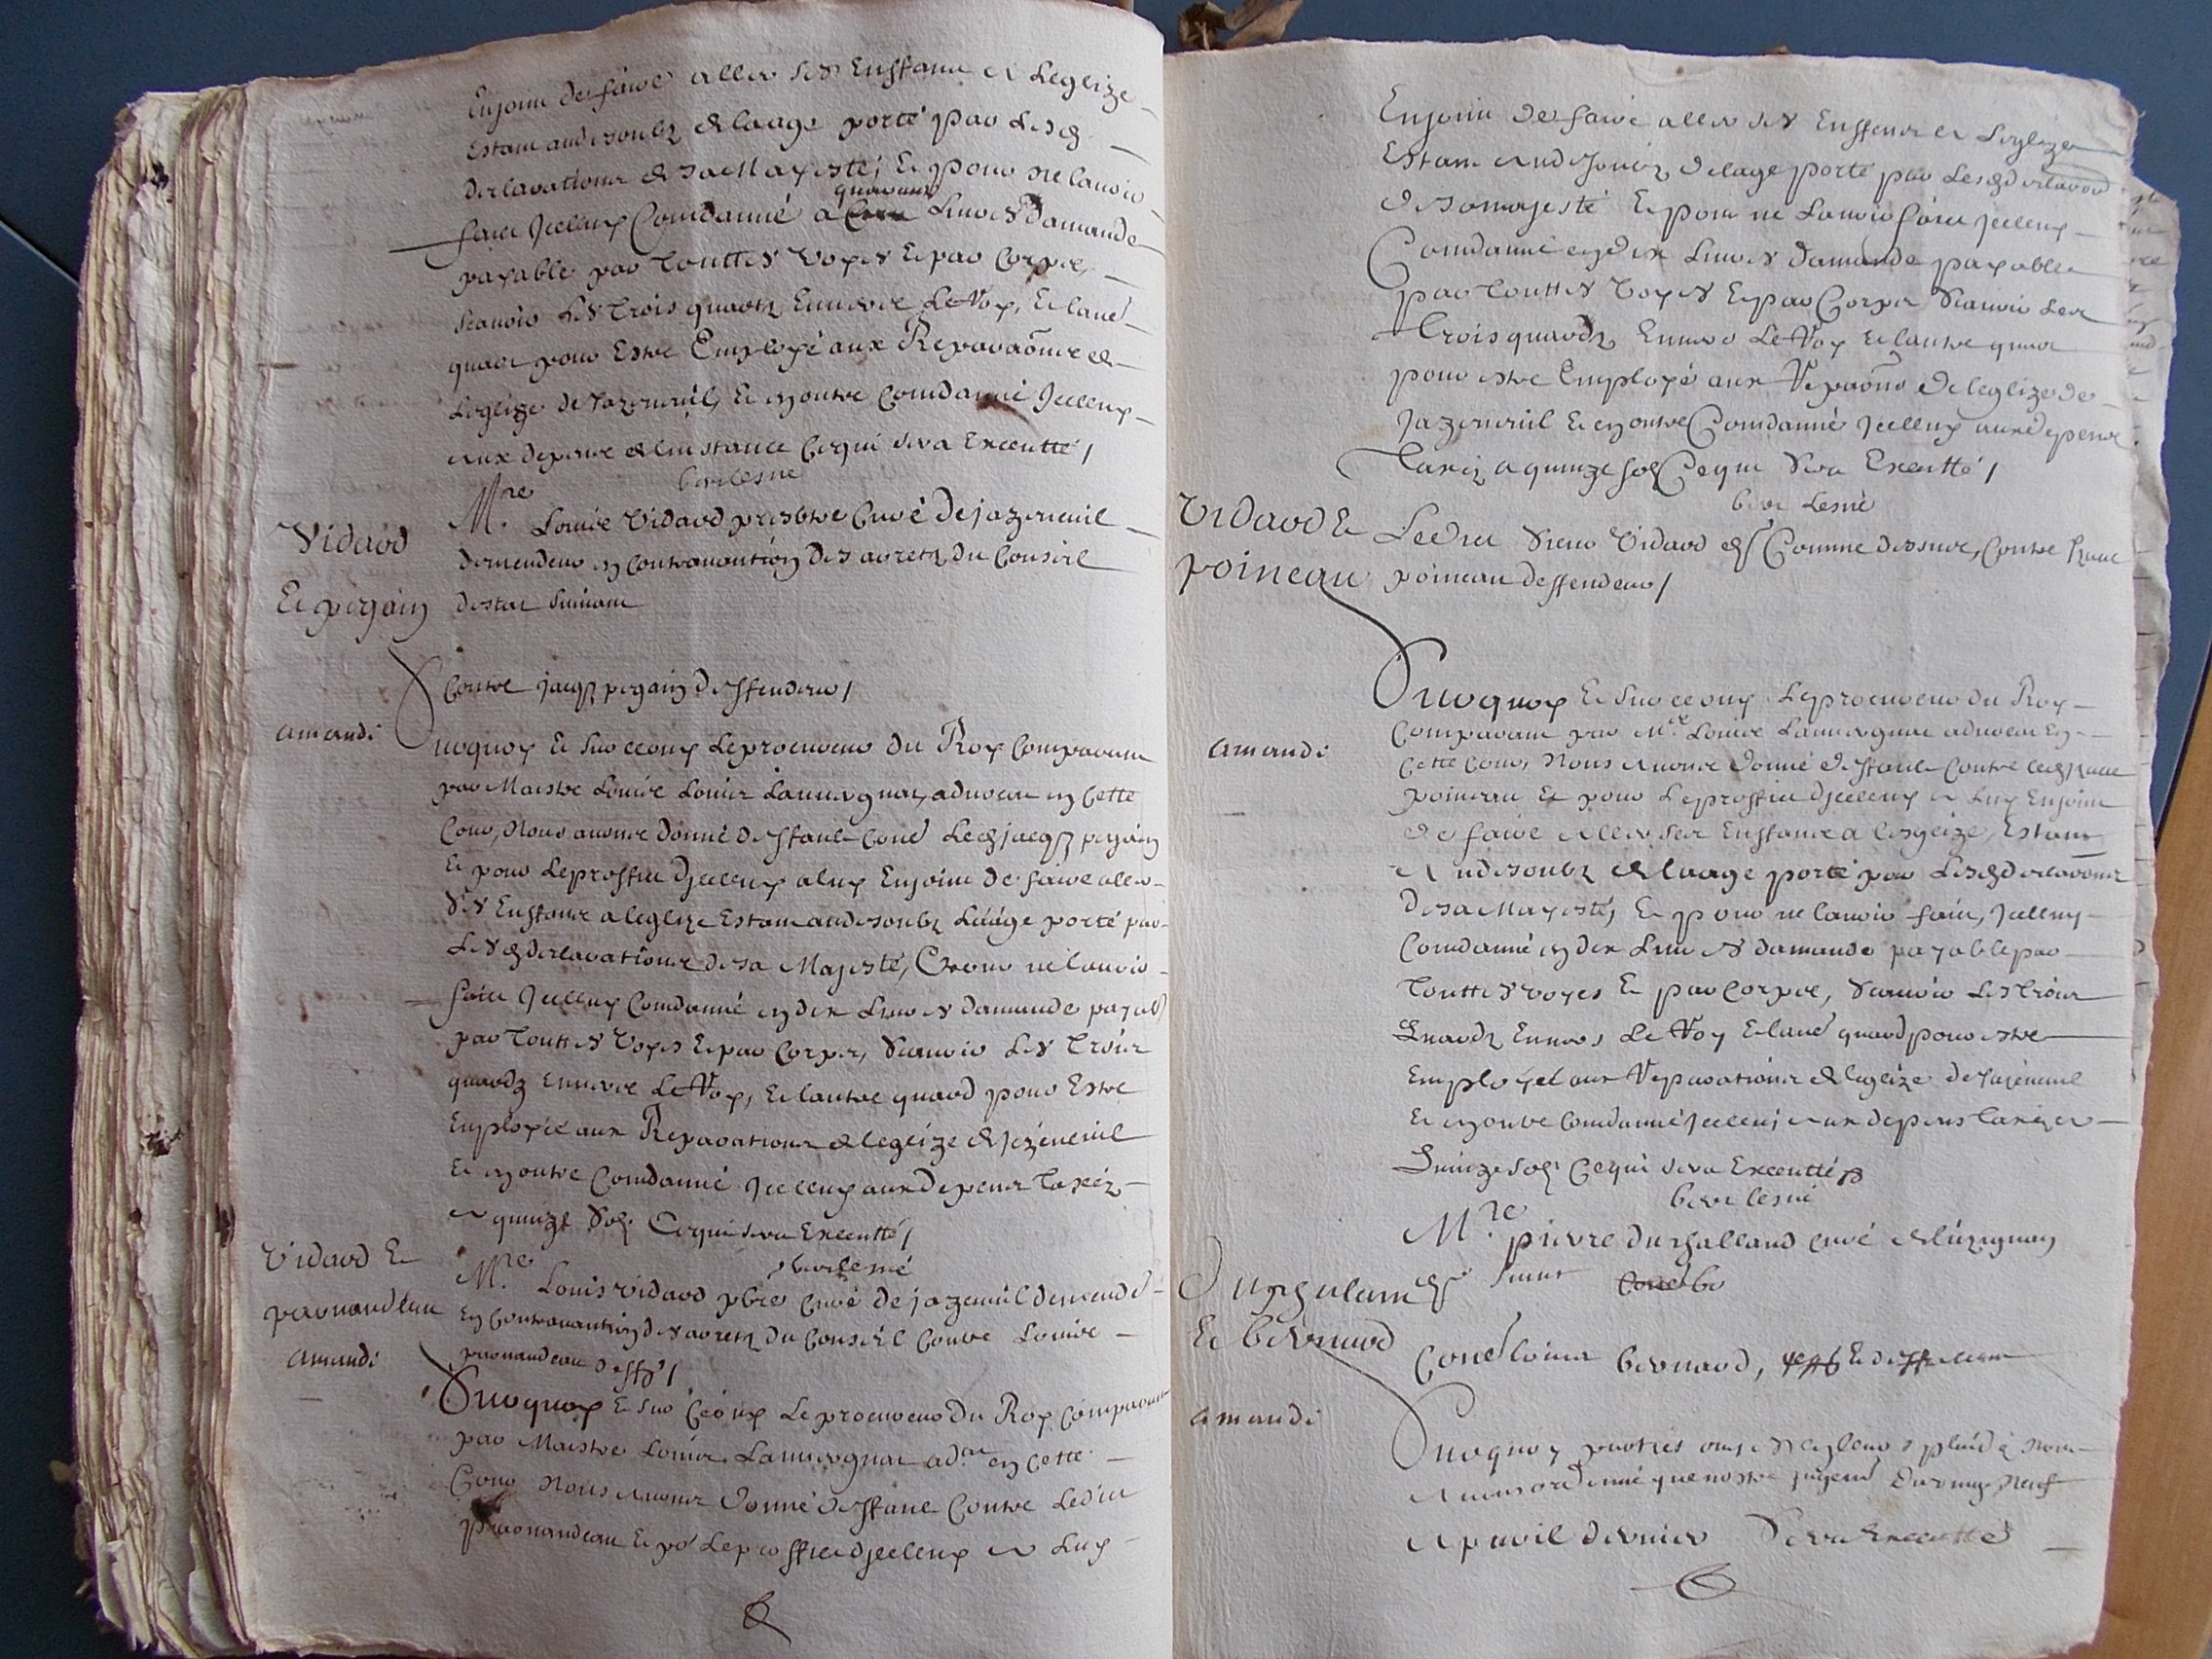 Enjoint de faire aller ses Enffans a Legleize
Estant audesoubz de laage porté par Lesd
declarations de sa Mayesté, Et pour ne lavoir
quarante
faict Jcelluy Comdanné a Livres damande
payable par touttes voyes Et par Corps,
scavoir Les trois quartz Envers Le Roy, Et laue
quart pour Estre Employé aux Reparaons de
Legleize de Jazeneuil, Et en outre Comdanné Jcelluy
aux depens de linstance Ce qui sera Executté /
berlesne
Mre Louis Vidard presbtre Curé de jazeneuil
demendeur en contravantion des arretz du Conseil
destat
Vidard
Et pegain
contre jacqs pegain deffendeur /
amande
Surquoy Et sur ce ouy Le procureur du Roy Comparant
par Maistre Louis Louis Lauvergnat, advocat en Cette
Cour, Nous avons donné deffault Cone Led jacqs pegain
Et pour Le proffict djcelluy a luy Enjoint de faire aller
ses Enffans a legleize Estant audesoubz Laage porté par
Les d declarations de sa Majesté, Et pour ne lavoir
faict Jcelluy Comdanné en dix Livres damande payab
par touttes voyes Et par Corps, scavoir Les trois
quards Envers Le Roy, Et lautre quard pour Estre
Employée aux Reparations de legleize de Jezeneuil
Et en outre Comdanné Jcelluy aux depens taxéz
a quinze sols Ce qui sera Executté /
berlesné
Vidard Et
parnaudeau
amande
Mre Louis Vidard pbre Curé de jazeneuil demend
En Contravantion des arretz du Conseil Contre Louis
parnaudeau deffr /
Surquoy Et sur Ce ouy Le procureur du Roy Comparant
par Maistre Louis Lauvergnat adat en Cette
Cour Nous avons donné deffaut Contre Ledit
parnaudeau Et pr Le proffict djcelluy a Luy
Enjoint de faire aller ses Enffens a Legleize
Estant audesoubz de lage porté par Lesd declaraons
de sa majesté Et pour ne Lavoir faict Jcelluy
Comdanné en dix Livres damande payable
par touttes voyes Et par Corps scavoir Les
trois quards Envers Le Roy Et lautre quart
pour estre Employé aux Reparaons de legleize de
Jazeneuil Et en outre Comdanné Jcelluy aux depens
taxéz a quinze sols Ce qui sera Executté /
berlesné
Vidard Et
poineau
Ledict sieur Vidard dr Comme dessus, Contre
poineau deffendeur /
amande
Surquoy Et sur ce ouy Le procureur du Roy
Comparant par Me Louis Lauvergnat advocat En
Cette Cour, Nous avons donné deffault Contre led
poineau Et pour Le proffict djcelluy a Luy Enjoint
de faire aller ses Enffans a Legleize, Estant
audesoubz de laage porté par Lesd declaraons
de sa Mayesté, Et pour ne lavoir faict, Jcelluy
Comdanné en dix Livres damande payable par
touttes voyes Et par Corps, scavoir Les trois
Quards Envers Le Roy Et laue quard pour estre
Employéé aux Reparations de legleize de Jazeneuil
Et en outre Comdanné Jcelluy aux depens taxez a
Quinze sols Ce qui sera Executté
berlesné
Mre pierre du challard curé de luzignan
Et bernard
Cone louis bernard, Et deffendeur
amande
Surquoy parties ouyes En leurs plaid Nous
avons ordonné que nostre jugent du vingt Neuf
apvril dernier sera Executté